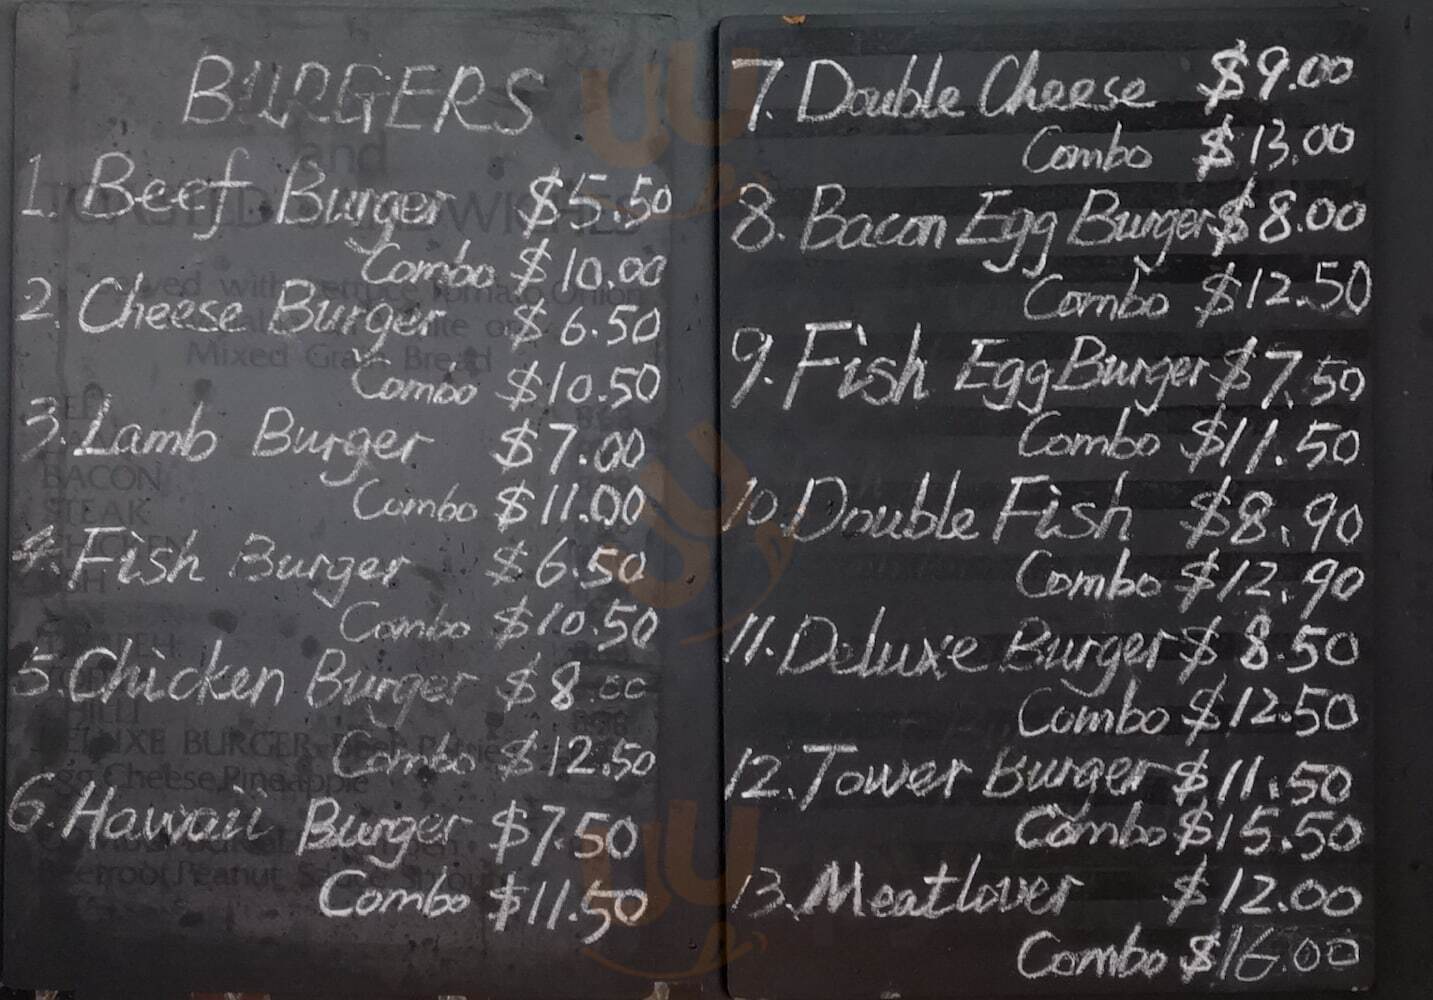 BURGERS
1. Beef Burger $5.50
Combo $10.00
2. Cheese Burger $6.50
Combo $10.50
3. Lamb Burger $7.00
Combo $11.00
4. Fish Burger $6.50
Combo $10.50
5. Chicken Burger $8.00
Combo $12.50
6. Hawaii Burger $7.50
Combo $11.50
and
TOASTED SANDWICHES
Mixed Grain Bread
BACON
STEAK
CHICKEN
CHILLI
DELUXE BURGER
Egg Cheese, Pineapple
7. Double Cheese $9.00
Combo $13.00
8. Bacon Egg Burger $8.00
Combo $12.50
9. Fish Egg Burger $7.50
Combo $11.50
10. Double Fish $8.90
Combo $12.90
11. Deluxe Burger $8.50
Combo $12.50
12. Tower Burger $11.50
Combo $15.50
13. Meatlover $12.00
Combo $16.00